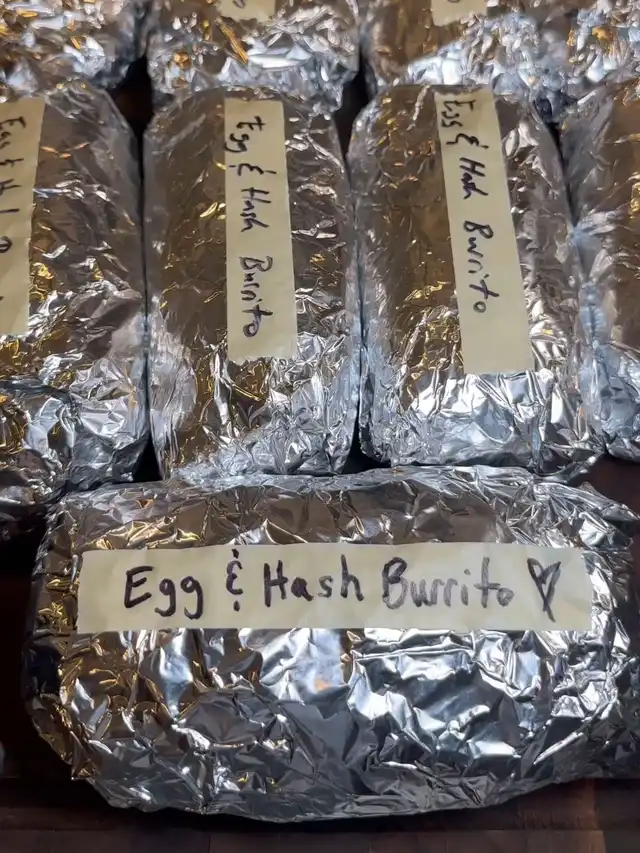 Egg & H
Egg & Hash Burrito
Egg & Hash Burrito
Egg & Hash Burrito ♡